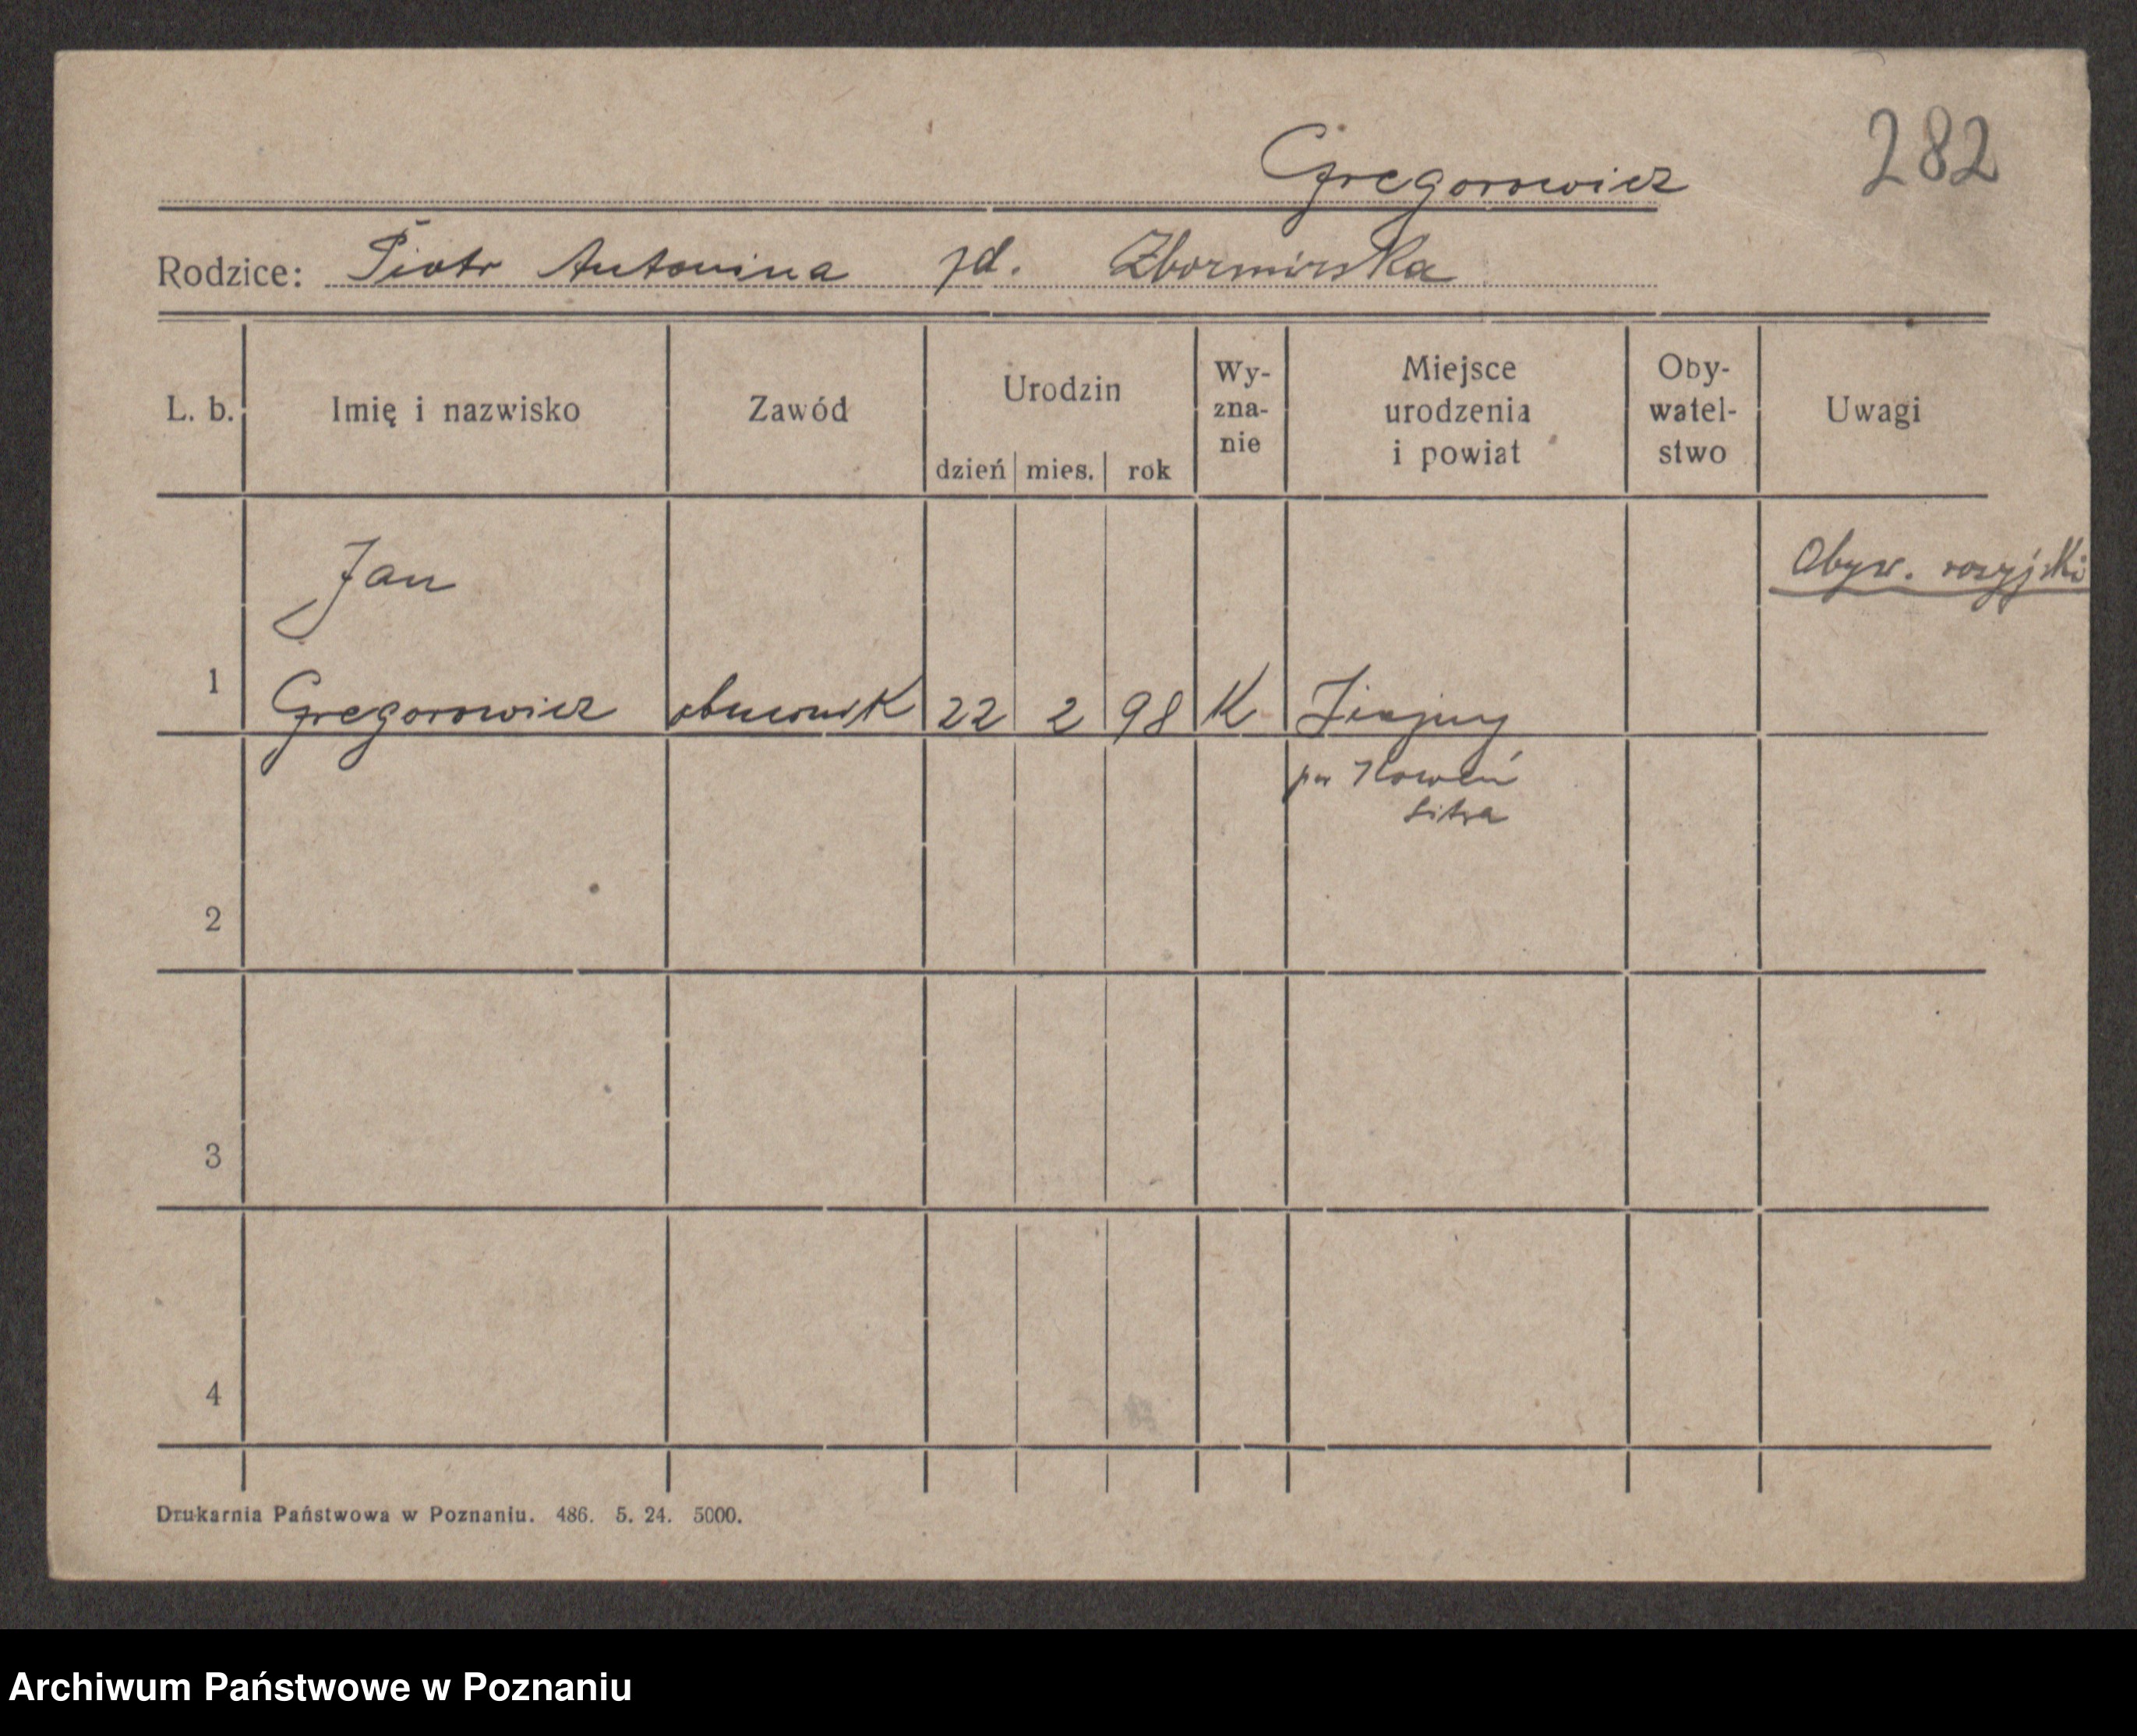 282
Gregorowicz
Rodzice: Piotr Antonina zd. Zbormirska
L. b. Imię i nazwisko Zawód Urodzin dzień mies. rok Wy-zna-nie Miejsce urodzenia i powiat Oby-watel-stwo Uwagi
Jan Obyw. rosyjski
1 Gregorowicz 22 2 98 K
pow Koweń
Litwa
2
3
4
Drukarnia Państwowa w Poznaniu. 486. 5. 24. 5000.
Archiwum Państwowe w Poznaniu